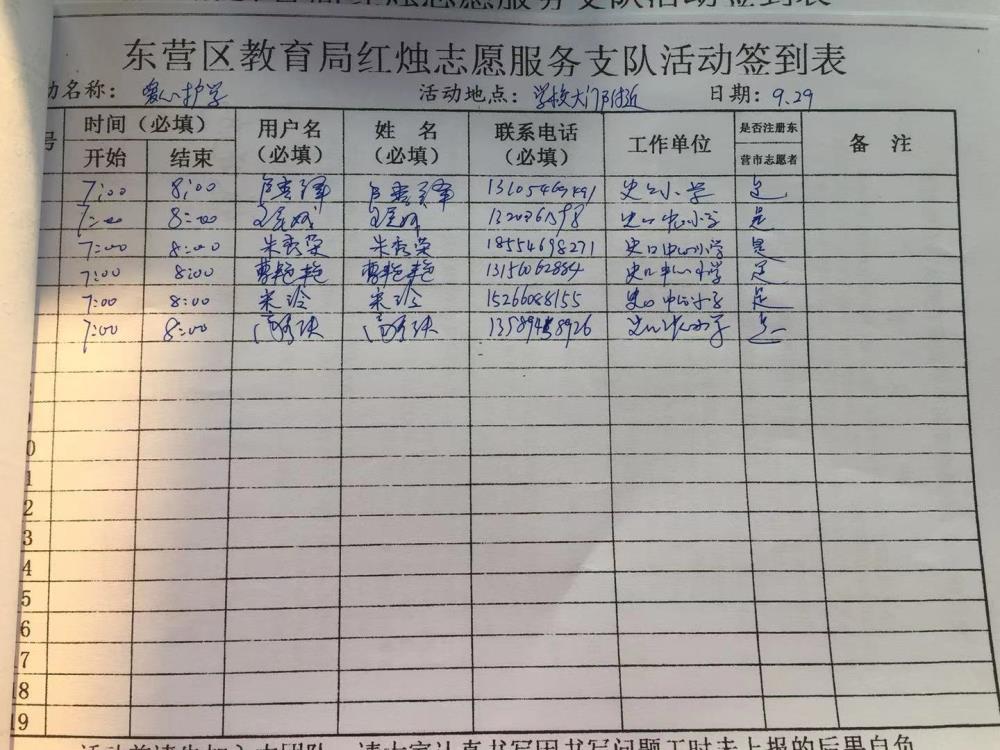 东营区教育局红烛志愿服务支队活动签到表
动名称：爱心护学 活动地点：学校大门附近 日期：9.29
号 时间（必填） 用户名（必填） 姓 名（必填） 联系电话（必填） 工作单位 是否注册东营市志愿者 备 注
开始 结束
7:00 8:00 史口小学 是
7:00 8:00 史口中心小学 是
7:00 8:00 朱秀荣 朱秀荣 18554698271 史口中心小学 是
7:00 8:00 曹艳艳 曹艳艳 13156062884 史口中心小学 是
7:00 8:00 宋玲 宋玲 15266088155 史口中心小学 是
7:00 8:00 史口中心小学 是
0
1
2
3
4
5
6
17
18
19
请大家认真书写因书写问题工时未上报的后果自负